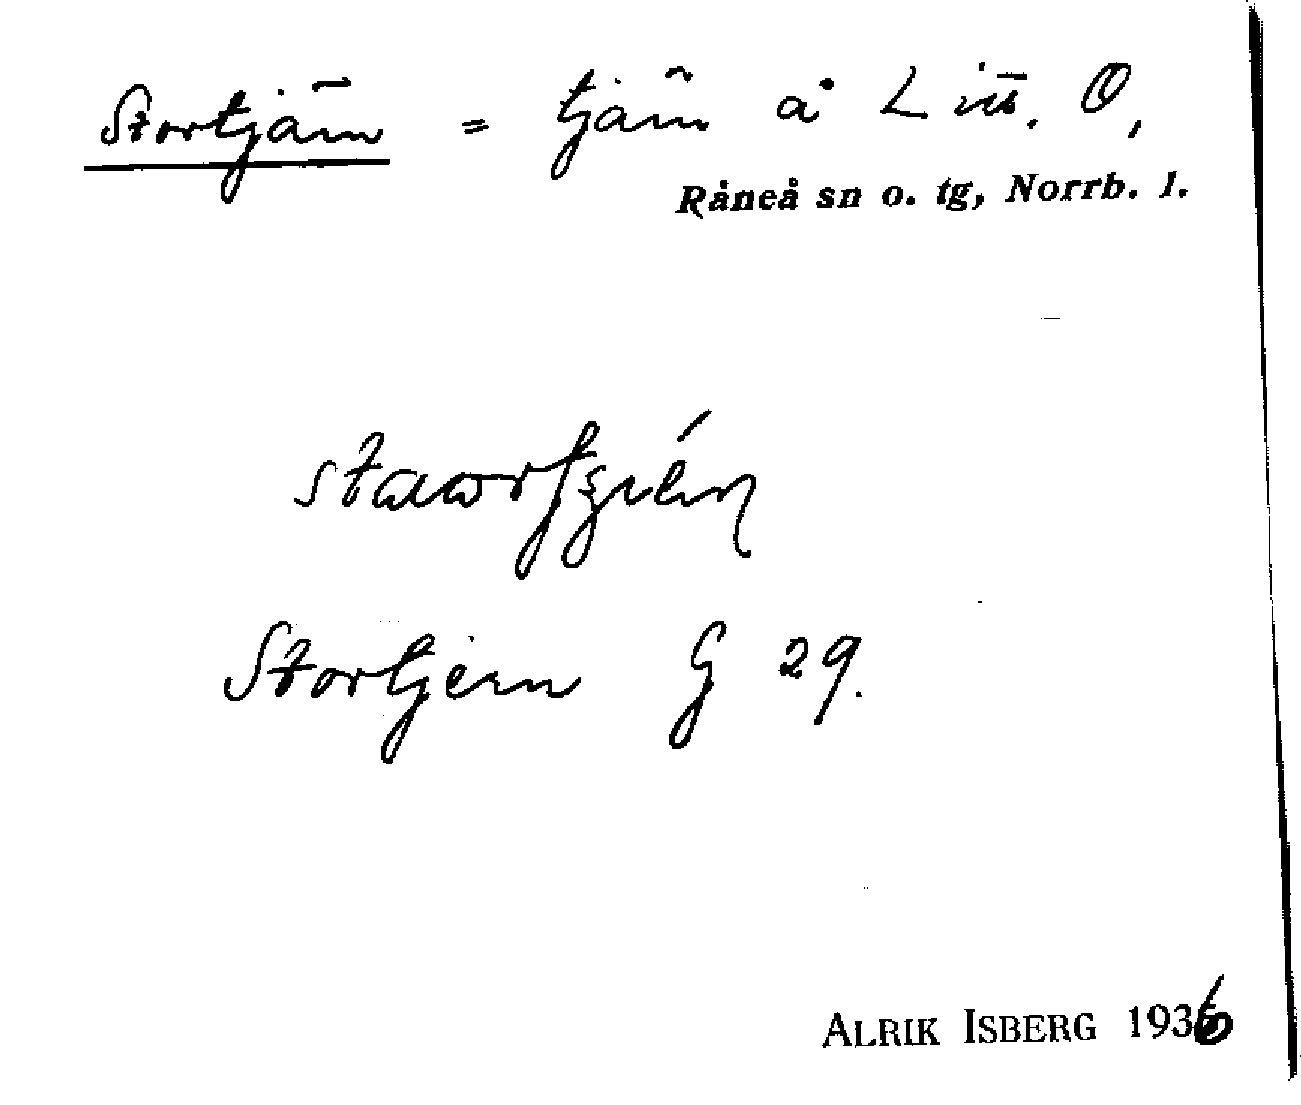 Stortjärn = tjärn å Litt. O,
Råneå sn o. tg, Norrb. l.
Stortjern G 29.
ALRIK ISBERG 1936